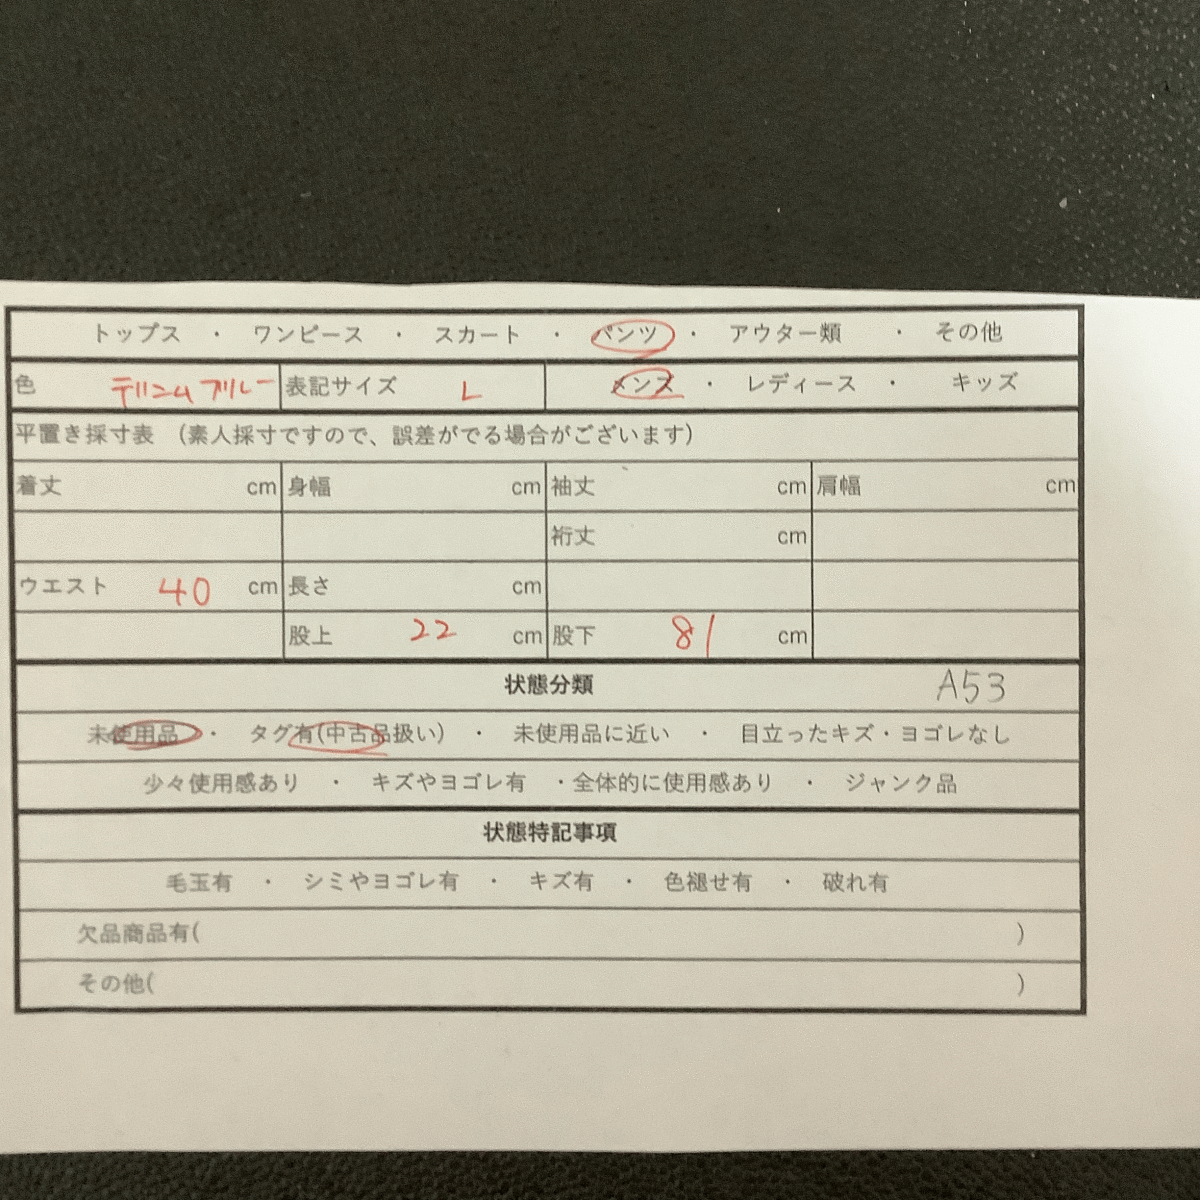 トップス ・ ワンピース ・ スカート ・ パンツ ・ アウター類 ・ その他
色 デニムブルー 表記サイズ L メンズ ・ レディース ・ キッズ
平置き採寸表 (素人採寸ですので、誤差がでる場合がございます)
着丈 cm 身幅 cm 袖丈 cm 肩幅 cm
裄丈 cm
ウエスト 40 cm 長さ cm
股上 22 cm 股下 81 cm
状態分類 A53
未使用品 ・ タグ有(中古品扱い) ・ 未使用品に近い ・ 目立ったキズ・ヨゴレなし
少々使用感あり ・ キズやヨゴレ有 ・全体的に使用感あり ・ ジャンク品
状態特記事項
毛玉有 ・ シミやヨゴレ有 ・ キズ有 ・ 色褪せ有 ・ 破れ有
欠品商品有( )
その他( )